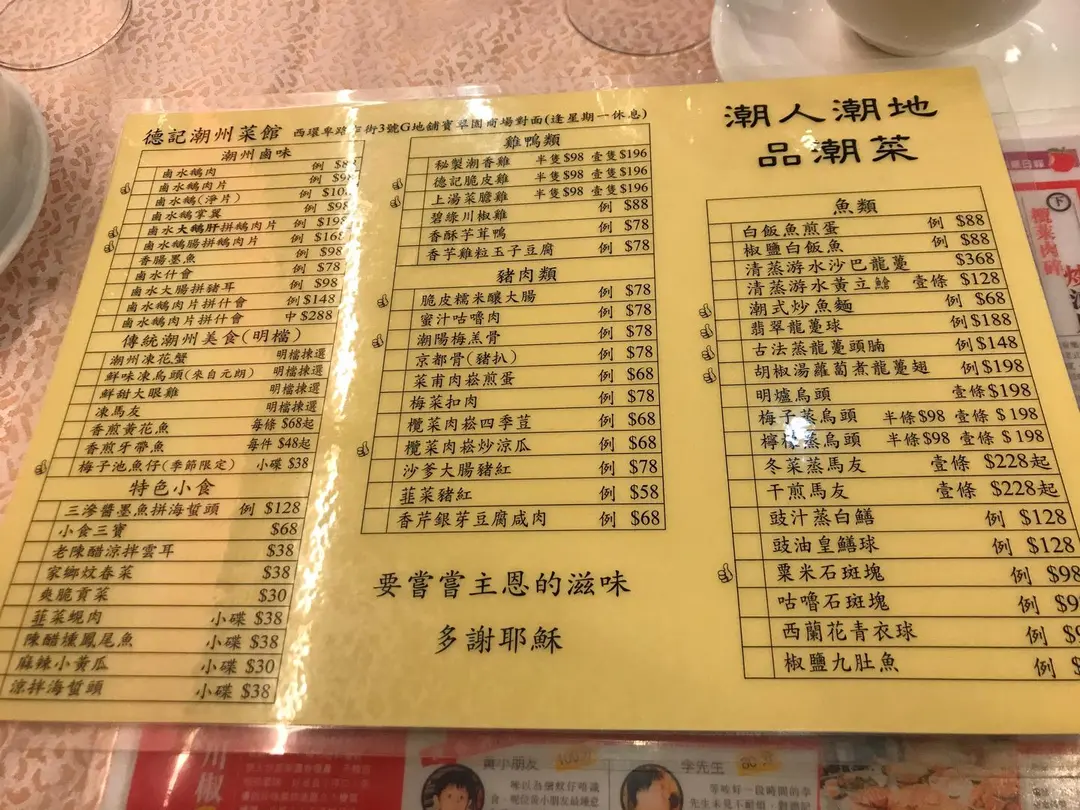 德記潮州菜館 西環卑路乍街3號G地舖寶翠園商場對面(逢星期一休息)
潮州鹵味
鹵水鵝肉 例
鹵水鵝肉片 例
鹵水鵝(淨片) 例
鹵水鵝掌翼 例
鹵水大鵝肝拼鵝肉片 例 $198
鹵水鵝腸拼鵝肉片 例 $168
香腸墨魚 例 $98
鹵水什會 例 $78
鹵水大腸拼豬耳 例 $98
鹵水鵝肉片拼什會 例 $148
鹵水鵝肉片拼什會 中 $288
傳統潮州美食(明檔)
潮州凍花蟹 明檔揀選
鮮味凍烏頭(來自元朗) 明檔揀選
鮮甜大眼雞 明檔揀選
凍馬友 明檔揀選
香煎黃花魚 每條 $68起
香煎牙帶魚 每件 $48起
梅子池魚仔(季節限定) 小碟 $38
特色小食
三滲醬墨魚拼海蜇頭 例 $128
小食三寶 $68
老陳醋涼拌雲耳 $38
家鄉炆春菜 $38
爽脆貢菜 $30
韮菜蜆肉 小碟 $38
陳醋燻鳳尾魚 小碟 $38
麻辣小黃瓜 小碟 $30
涼拌海蜇頭 小碟 $38
雞鴨類
秘製潮香雞 半隻 $98 壹隻 $196
德記脆皮雞 半隻 $98 壹隻 $196
上湯菜膽雞 半隻 $98 壹隻 $196
碧綠川椒雞 例 $88
香酥芋茸鴨 例 $78
香芋雞粒玉子豆腐 例 $78
豬肉類
脆皮糯米釀大腸 例 $78
蜜汁咕嚕肉 例 $78
潮陽梅羔骨 例 $78
京都骨(豬扒) 例 $78
菜甫肉崧煎蛋 例 $68
梅菜扣肉 例 $78
欖菜肉崧四季荳 例 $68
欖菜肉崧炒涼瓜 例 $68
沙爹大腸豬紅 例 $78
韮菜豬紅 例 $58
香芹銀芽豆腐咸肉 例 $68
要嘗嘗主恩的滋味
多謝耶穌
潮人潮地
品潮菜
魚類
白飯魚煎蛋 例 $88
椒鹽白飯魚 例 $88
清蒸游水沙巴龍躉 $368
清蒸游水黃立鱠 壹條 $128
潮式炒魚麵 例 $68
翡翠龍躉球 例 $188
古法蒸龍躉頭腩 例 $148
胡椒湯蘿蔔煮龍躉翅 例 $198
明爐烏頭 壹條 $198
梅子蒸烏頭 半條 $98 壹條 $198
檸檬蒸烏頭 半條 $98 壹條 $198
冬菜蒸馬友 壹條 $228起
干煎馬友 壹條 $228起
豉汁蒸白鱔 例 $128
豉油皇鱔球 例 $128
粟米石斑塊 例 $98
咕嚕石斑塊 例
西蘭花青衣球 例
椒鹽九肚魚 例
下
欖菜肉碎
川椒
黃小朋友
李先生